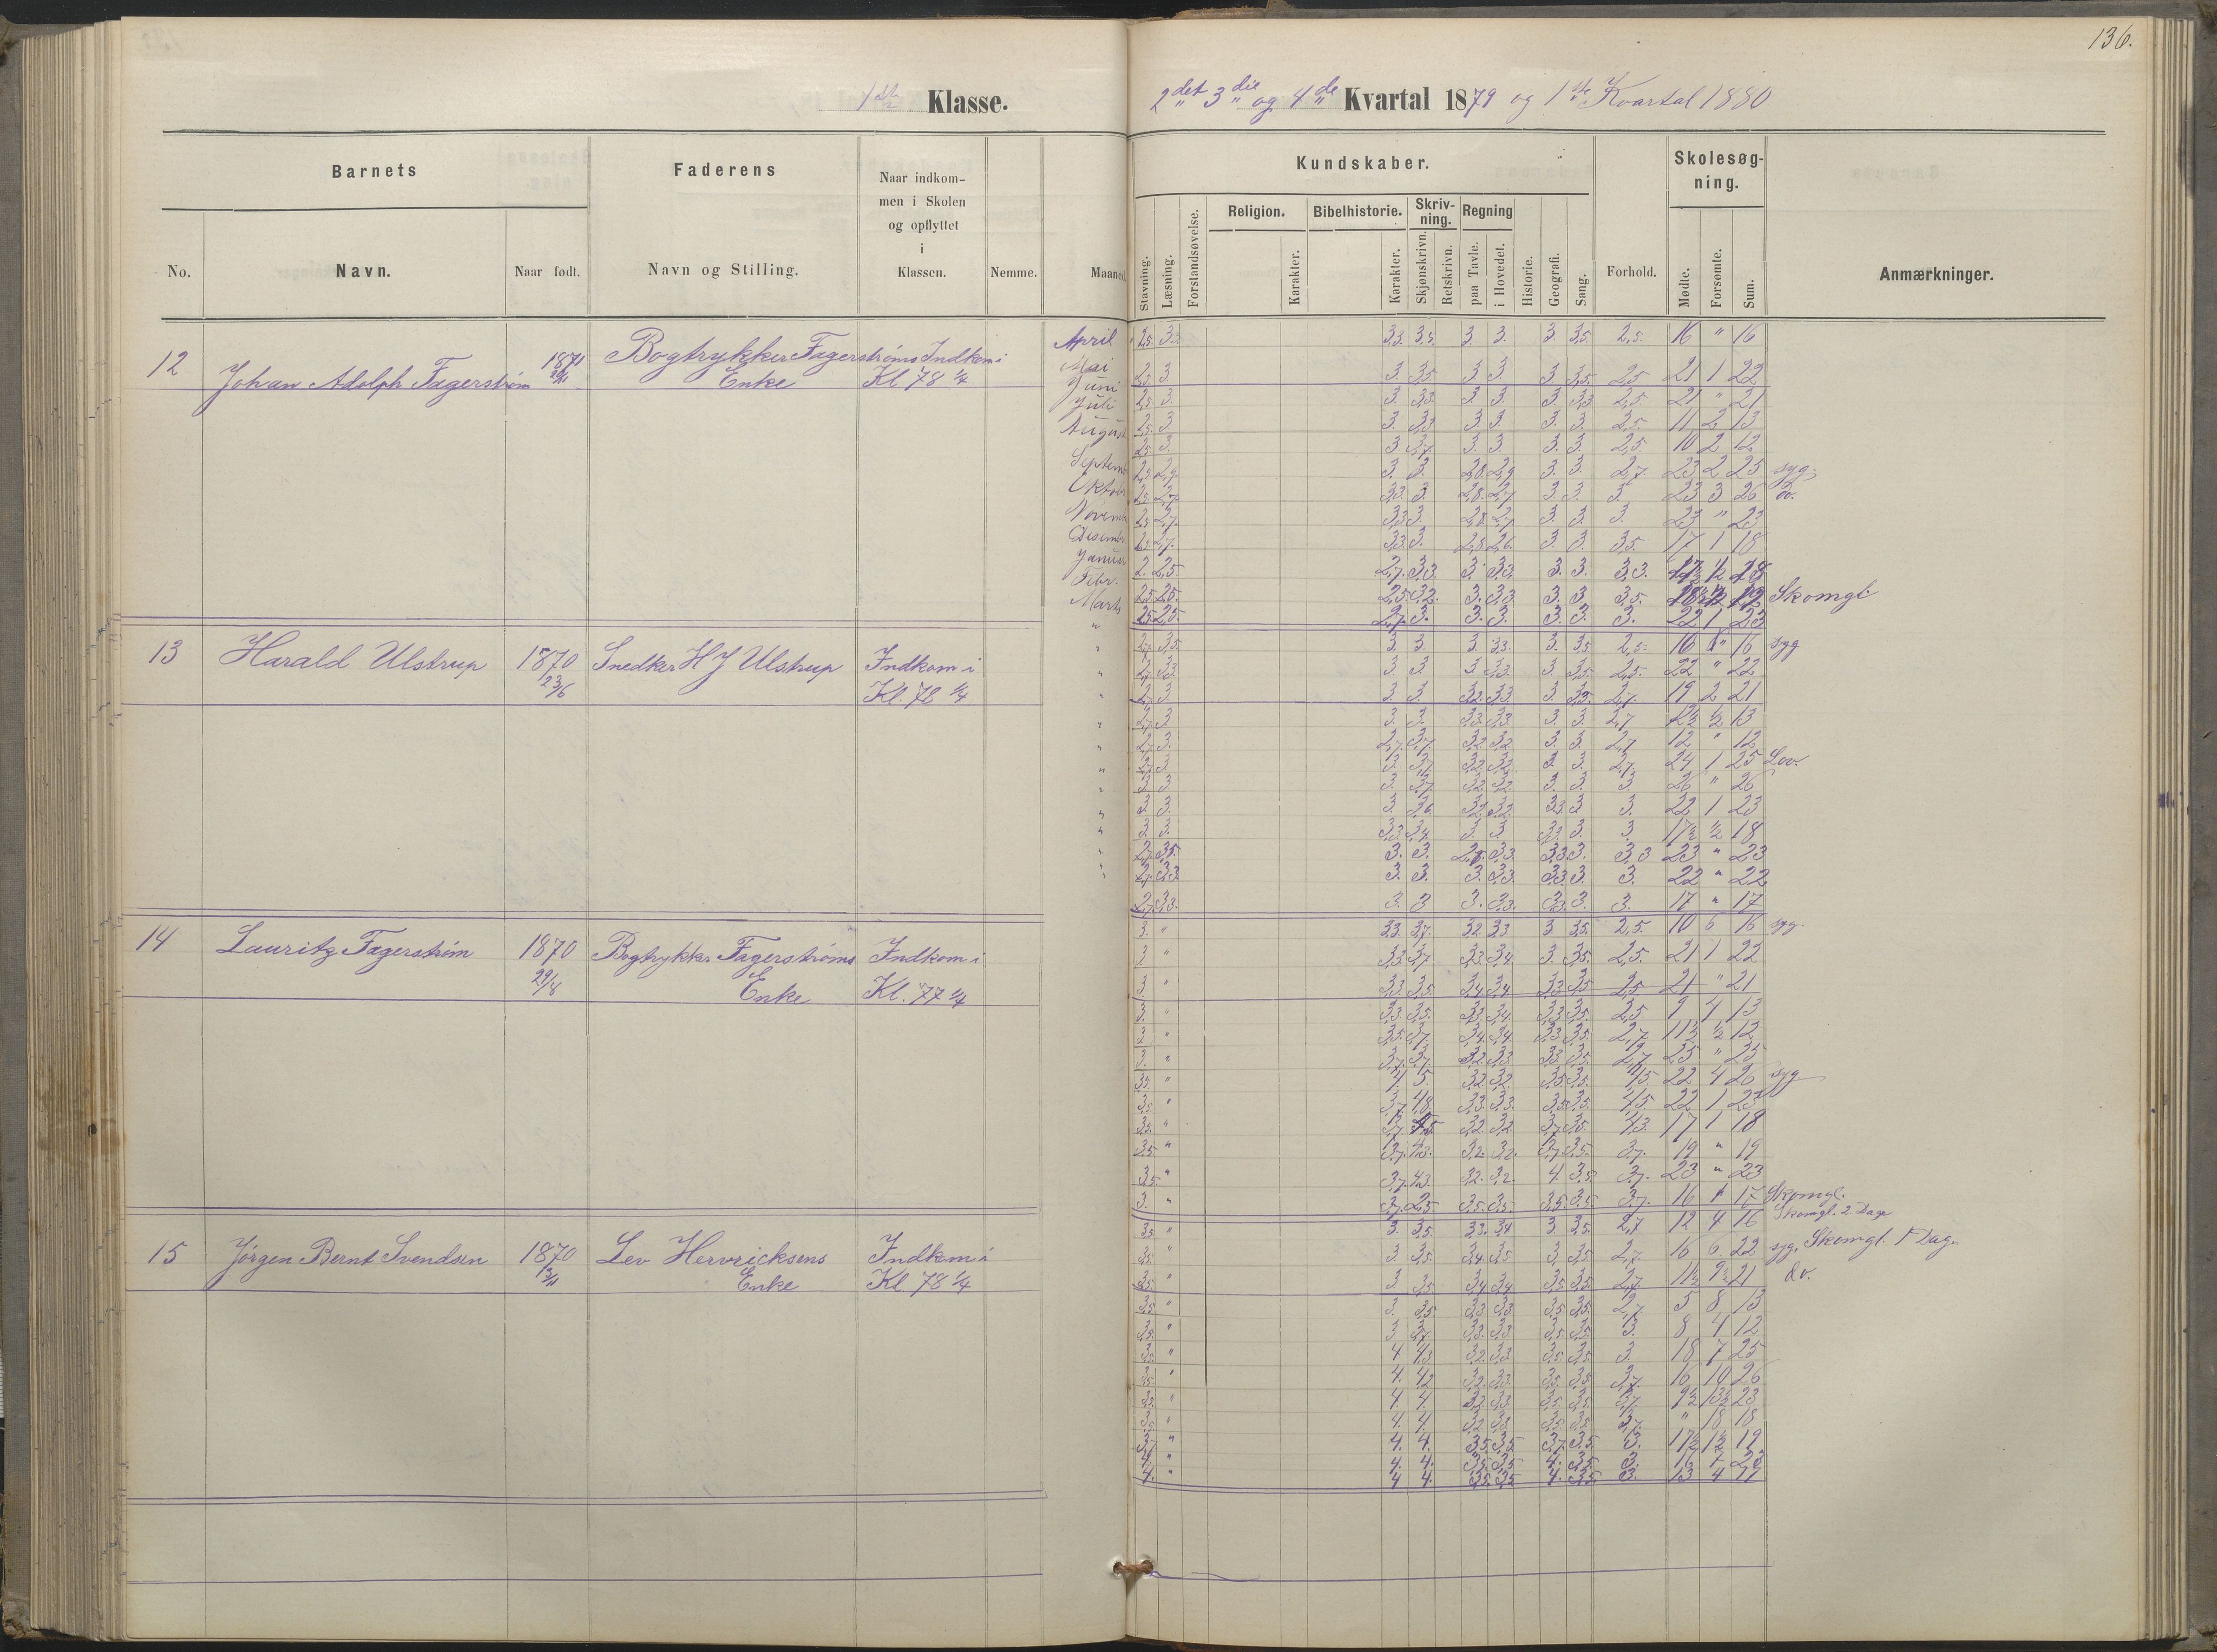 136.
1ste Klasse.
2det 3die og 4de Kvartal 1879 og 1ste Kvartal 1880
Barnets
Faderens
Naar indkom-
men i Skolen
og opflyttet
i
Klassen.
Nemme.
Maaned
No.
Navn.
Naar født.
Navn og Stilling.
Kundskaber.
Skolesøg-
ning.
Stavning.
Læsning.
Forstandsøvelse.
Religion.
Karakter.
Bibelhistorie.
Karakter.
Skriv-
ning.
Skjønskrivn.
Retskrivn.
Regning
paa Tavle.
i Hovedet.
Historie.
Geografi.
Sang.
Forhold.
Mødte.
Forsømte.
Sum.
Anmærkninger.
12 Johan Adolph Fagerstrøm 1871 Bogtrykker Fagerstrøms Enke Indkom i Kl 78 1/4
April 2,5 3,3 3,3. 3,5. 3. 3. 3. 3,5. 2,5. 16 " 16
Mai 3 3. 3,5 3 3. 3 3,5. 2,5 21 1 22
Juni 3 3. 3,3 3. 3. 3. 3,3 2,5. 21 " 21
Juli 3 3. 3,3 3. 3. 3. 3. 11 2 13
August 3. 3 3,7 3. 3. 3. 3. 2,5. 10 2 12
Septemb 2,9 3. 3. 2,8 2,9 3. 3. 2,7. 23 2 25 syg.
Oktob 2,7 3,3. 3 2,8. 2,7 3. 3. 3. 23 3 26 do.
Novemb 2,7. 3,3 3. 2,8. 2,7 3. 3. 3. 23 " 23
Desemb 2,7. 3,3. 3. 2,8. 2,6. 3. 3. 3,5. 17 1 18
Januar 2. 2,5. 2,7. 3,3. 3. 3,3. 3. 3. 3,3.
Febr. 2,5 2,5. 2,5 3,2. 3. 3,3 3. 3 3,5. Skomgl.
Marts 2,5 2,5. 2,7. 3. 3. 3. 3. 3. 3. 22 1 23
13 Harald Ulstrup 1870 23/6 Snedker H J Ulstrup Indkom i Kl. 78 1/4
3,5. 3. 3. 3 3,3. 3. 3,5 2,5. 16 " 16 syg
3,3 3 3 3 3,3. 3 3,5. 2,5. 22 " 22
2,7. 3. 3. 3. 3,2. 3,3. 3 3,3. 2,7. 19 2 21
2,7. 3 3. 3. 3,3. 3,3 3. 3. 2,7 12 1/2 1/2 13
2,7. 3. 2,7. 3,7. 3,2 3,2 3. 3. 2,7 12 " 12
2,7. 3 3. 3,7 3,2. 3,2. 3. 3. 2,7. 24 1 25 Lov.
3. 3 3. 3,7 3,2. 3,2. 3. 3. 3 26 " 26
3. 3. 3. 3,6 3,2. 3,2 3,3 3 3. 22 1 23
3. 3. 3,3. 3,4 3. 3. 3,3. 3. 3. 17 1/2 1/2 18
2,7. 3,5. 3. 3. 2,7. 3,3 3,3 3. 3,3 23 " 23
2,7. 3,3 3. 3. 3. 3,3. 3,3. 3. 3. 22 " 22
2,7. 3,3. 3. 3 3. 3,3. 3,3. 3. 3. 17 " 17
14 Lauritz Fagerstrøm 1870 29/8 Bogtrykker Fagerstrøms Enke Indkom i Kl. 77 1/4
3. " 3,3. 3,7. 3,2 3,3 3 3,5. 2,5. 10 6 16 syg.
3 " 3,3 3,7 3,3. 3,4 3. 3,5. 2,5. 21 1 22
3. " 3,3. 3,5 3,4 3,4 3,3 3,5 2,5 21 " 21
3. " 3,3 3,5. 3,3 3,4. 3,3 3,5. 2,5. 9 4 13
3 " 3,5. 3,7 3,4. 3,4. 3,3. 3,5. 2,7. 11 1/2 1/2 12
3. " 3,7 3,7. 3,2. 3,3 3,3 3,5. 2,7 25 " 25
3,5. " 4. 5. 3,2. 3,2. 3,5 3,5. 4,5. 22 4 26 syg
3,5. " 3,7 4,8 3,3. 3,3. 3,5 3,5. 4,5 22 1 23
3,5. " 3,7 4,5 3,2. 3,2. 3,7 3,5. 4,3. 17 1 18
3,5. " 3,7. 3,2. 3,2. 3,7. 3,5. 3,7. 19 " 19
3,5 " 3,7. 3,2. 3,2. 4 3,5 3,7. 23 " 23
3. " 3,7. 2,5 3,5. 3,5. 3,5 3,5 3,7. 16 1 17 Skomgl.
15 Jörgen Bernt Svendsen 1870 13/11 Lev Henricksens Enke Indkom i Kl. 78 1/4
3,5 " 3. 3,5 3,3. 3,4 3 3,5. 2,7 12 4 16 Skomgl. 2 Dage
3,5. " 3 3,5. 3,4. 3,5 3 3,5. 2,7. 16 6 22 syg, Skomgl. 1 Dag.
3,5. " 3 3,5 3,4 3,4 3,5 3,5. 2,7. 11 1/2 9 1/2 21 do.
3,5 " 3. 3,5 3,3. 3,3 3,5 3,5. 2,7. 5 8 13
3,5. " 3 3,7. 3,3. 3,3 3,5. 3,5. 3. 8 4 12
3,5. " 4 4,3 3,2. 3,3 3,5 3,5 3. 18 7 25
3,5. " 4. 4,2 3,2. 3,3. 3,5. 3,5 3,7. 16 10 26
" 4. 4. 3,2. 3,3 3,5. 3,5. 3,7. 9 1/2 13 1/2 23
" 4. 4. 3,2 3,3 3,5 3,5 3,7. " 18 18
3,7 " 4. 4. 3,5. 3,5. 3,7. 3,5. 3. 17 1/2 1 1/2 19
4. " 4. 4. 3,5. 3,5 4. 3,5 3. 16 7 23
4. " 4 4. 3,5. 3,5 4. 3,5 3. 13 4 17